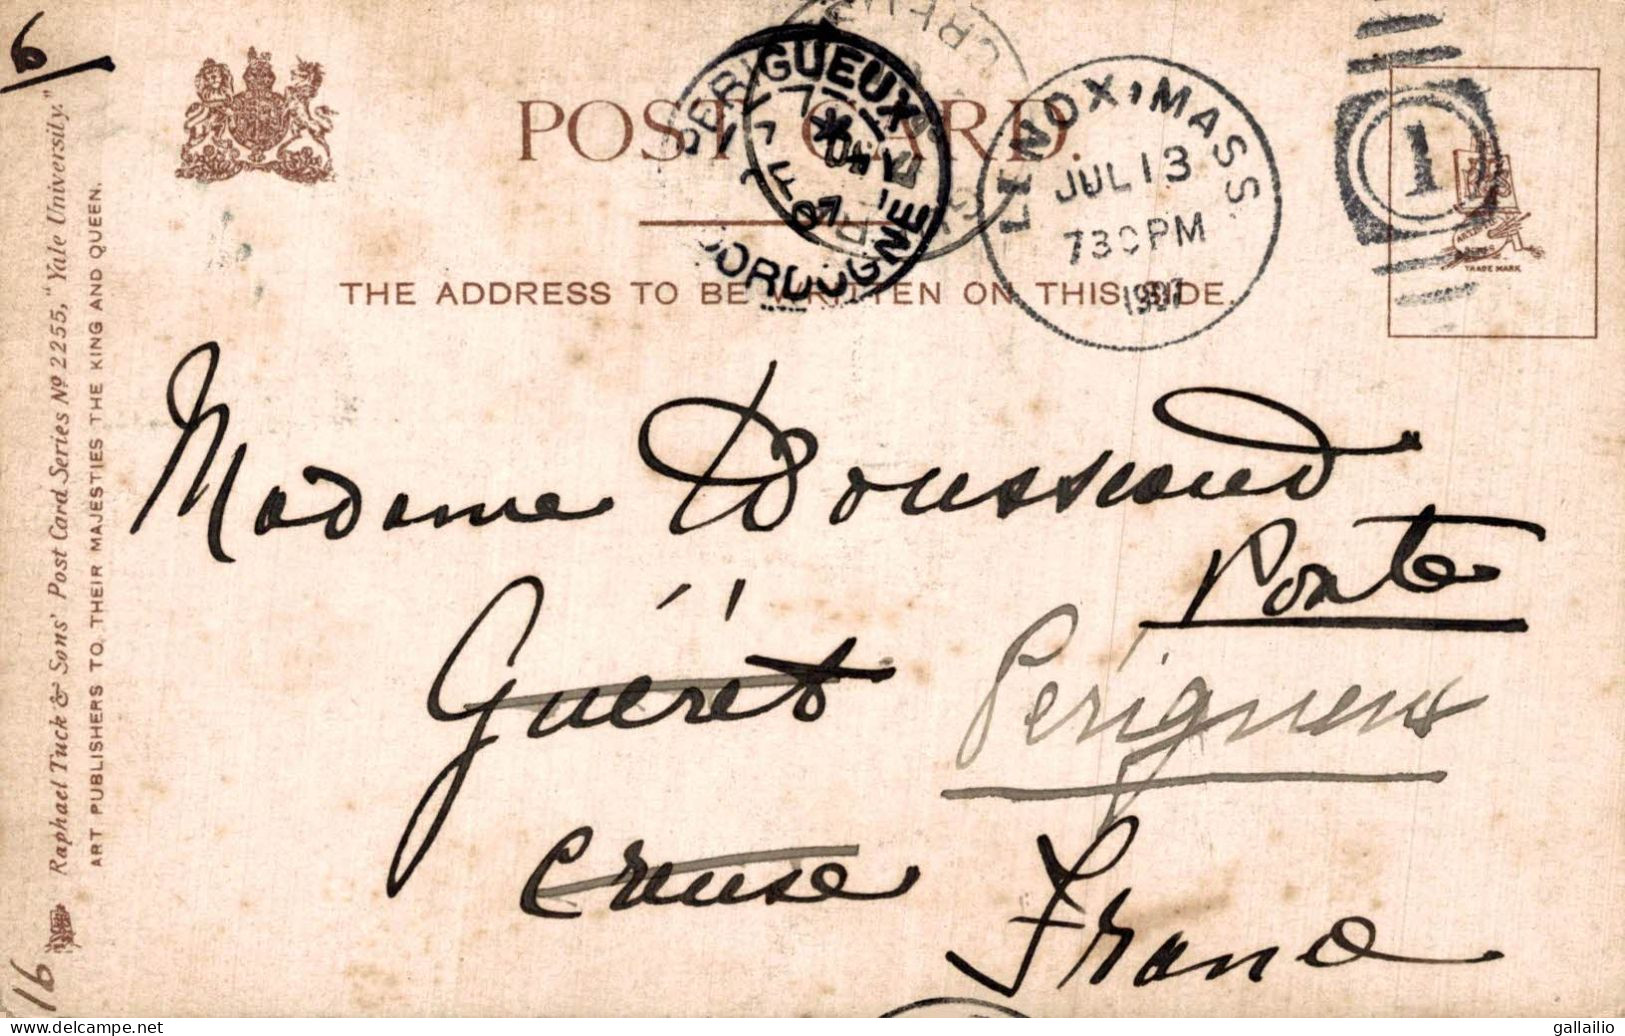 6
POST CARD.
THE ADDRESS TO BE WRITTEN ON THIS SIDE.
PERIGUEUX
DORDOGNE
07
LENOX, MASS.
JUL 13
730PM
1907
1
TRADE MARK
Madame
Guéret
Perigueux
Creuse
France
Raphael Tuck & Sons' Post Card Series No 2255, "Yale University."
ART PUBLISHERS TO THEIR MAJESTIES THE KING AND QUEEN.
16
gallailio
delcampe.net